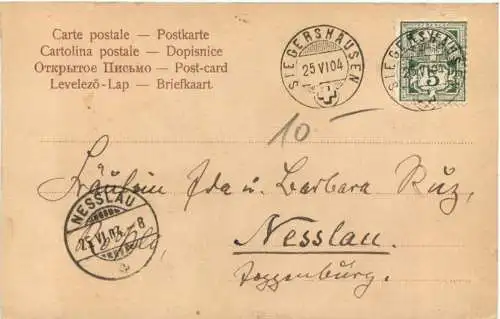 Carte postale — Postkarte
Cartolina postale — Dopisnice
Открытое Письмо — Post-card
Levelező-Lap — Briefkaart
SIEGERSHAUSEN
25 VI 04
SIEGERSHAUSEN
5
10-
Fräulein Ida u. Barbara Ruz,
NESSLAU
25.VI.04.-8
Nesslau.
Toggenburg.